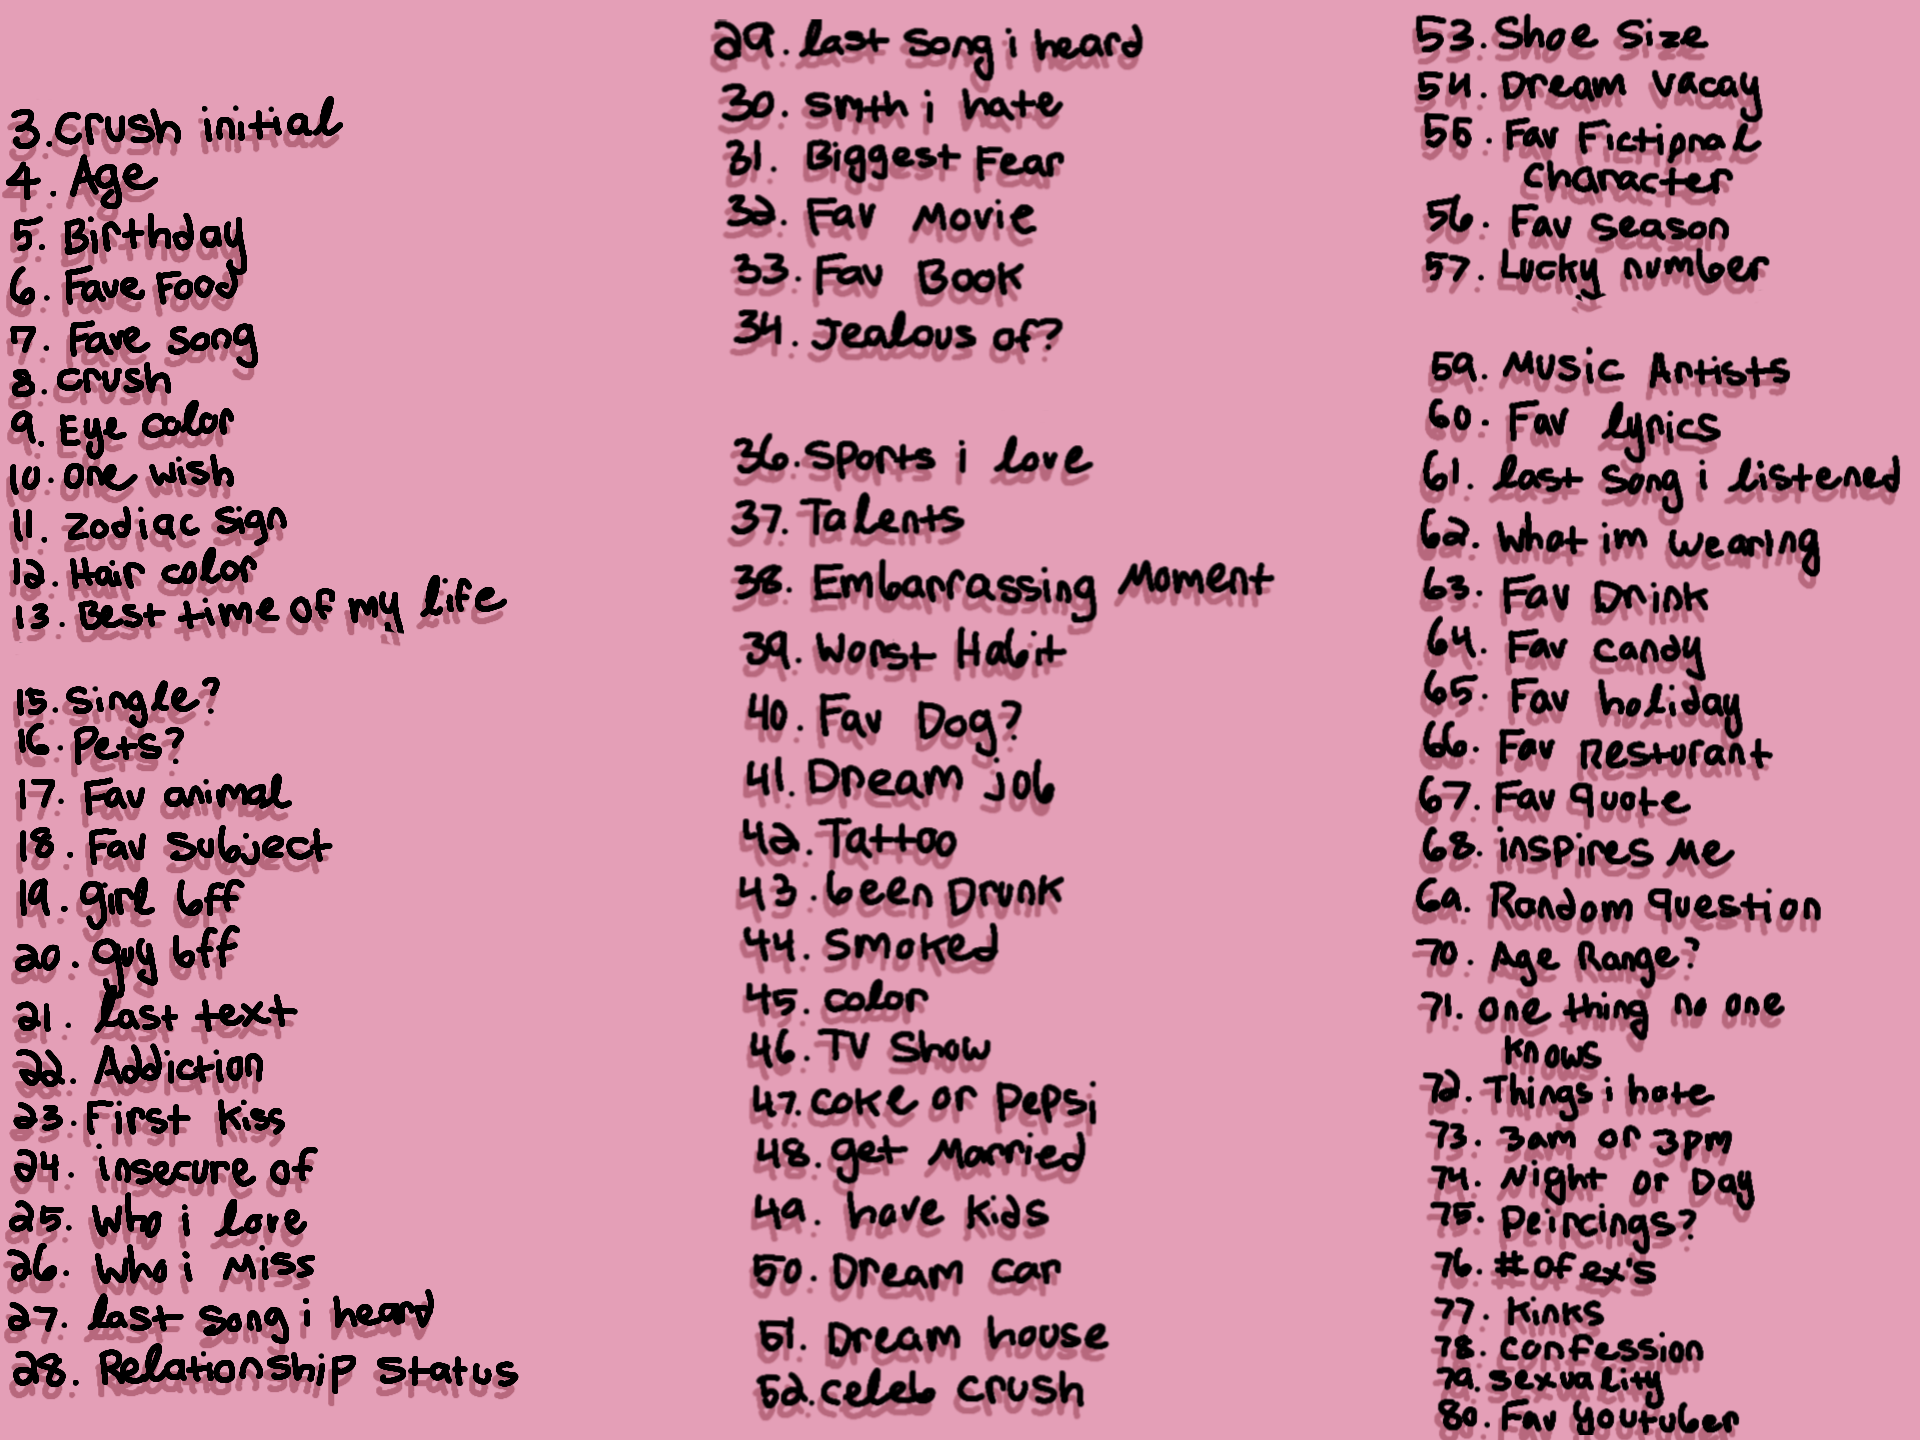 3. Crush initial
4. Age
5. Birthday
6. Fave Food
7. Fave song
8. Crush
9. Eye color
10. one wish
11. Zodiac Sign
12. Hair color
13. Best time of my life
15. Single?
16. Pets?
17. Fav animal
18. Fav Subject
19. girl bff
20. guy bff
21. last text
22. Addiction
23. First kiss
24. insecure of
25. Who i love
26. Who i Miss
27. last song i heard
28. Relationship Status
29. last song i heard
30. smth i hate
31. Biggest Fear
32. Fav Movie
33. Fav Book
34. Jealous of?
36. Sports i love
37. Talents
38. Embarrassing Moment
39. Worst Habit
40. Fav Dog?
41. Dream job
42. Tattoo
43. been Drunk
44. Smoked
45. color
46. TV Show
47. coke or Pepsi
48. get Married
49. have kids
50. Dream car
51. Dream house
52. celeb crush
53. Shoe Size
54. Dream Vacay
55. Fav Fictional
Character
56. Fav season
57. Lucky number
59. Music Artists
60. Fav lyrics
61. last song i listened
62. What im wearing
63. Fav Drink
64. Fav candy
65. Fav holiday
66. Fav Resturant
67. Fav quote
68. inspires Me
69. Random question
70. Age Range?
71. one thing no one
knows
72. Things i hate
73. 3am or 3pm
74. Night or Day
75. Peircings?
76. # of ex's
77. Kinks
78. Confession
79. sexuality
80. Fav Youtuber